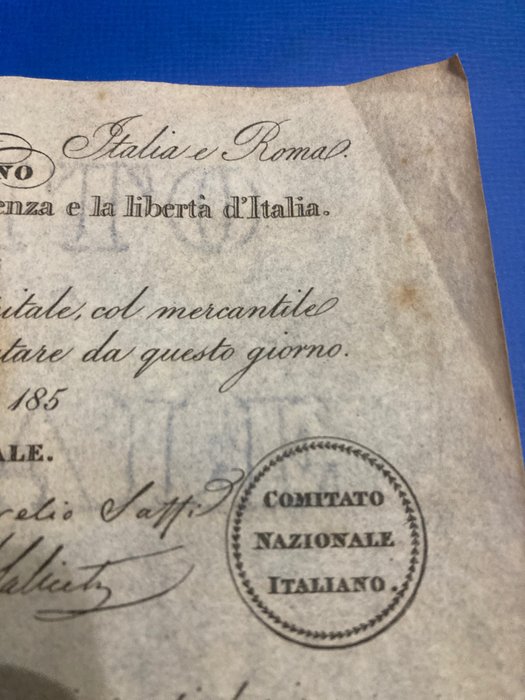 Italia e Roma.
NO
enza e la libertà d'Italia.
itale, col mercantile
tare da questo giorno.
185
ALE.
relio Saffi
Saliceti
COMITATO
NAZIONALE
ITALIANO.